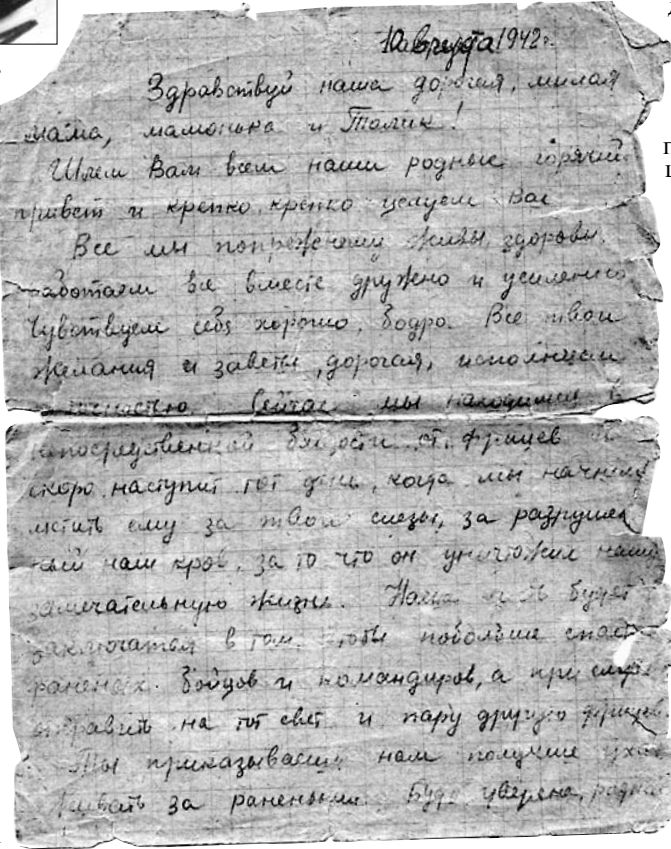 10 августа 1942 г.
Здравствуй наша дорогая, милая
мама, мамонька и Толик!
Шлем Вам всем наши родные горячий
привет и крепко, крепко целуем Вас
Все мы попрежнему живы, здоровы,
работаем все вместе дружно и усиленно
Чувствуем себя хорошо, бодро. Все твои
желания и заветы, дорогая, исполняем
Сейчас мы находимся в
непосредственной близости от фрицев и
скоро наступит тот день, когда мы начнем
мстить ему за твои слезы, за разрушен
ный наш кров, за то что он уничтожил нашу
замечательную жизнь. Наша будет
заключаться в том чтобы побольше спасти
раненых бойцов и командиров, а при случае
отправить на тот свет и пару другую фрицев
Ты приказываешь нам получше уха
живать за ранеными. Будь уверена, родная